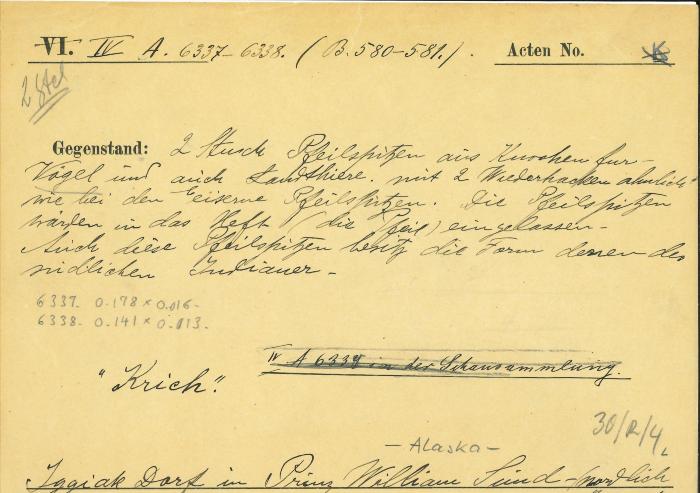 VI. IV A. 6337-6338. (B. 580-581.) Acten No.
2 Stck
Gegenstand: 2 Stuck Pfeilspitzen aus Knochen fur-
Vögel und auch Landthiere. mit 2 Wiederhacken ahnlich
wie bei den Eiserne Pfeilspitzen. Die Pfeilspitzen
wärden in das Heft (die Pfeil) eingelassen-
Auch diese Pfeilspitzen besitz die Form denen des
sudlichen Indianer-
6337. 0.178 x 0.016-
6338. 0.141 x 0.013.
IV A 6338 in der Schausammlung.
"Krich".
30/12/4.
- Alaska -
Iggiak Dorf in Prinz William Sund-(nordlich